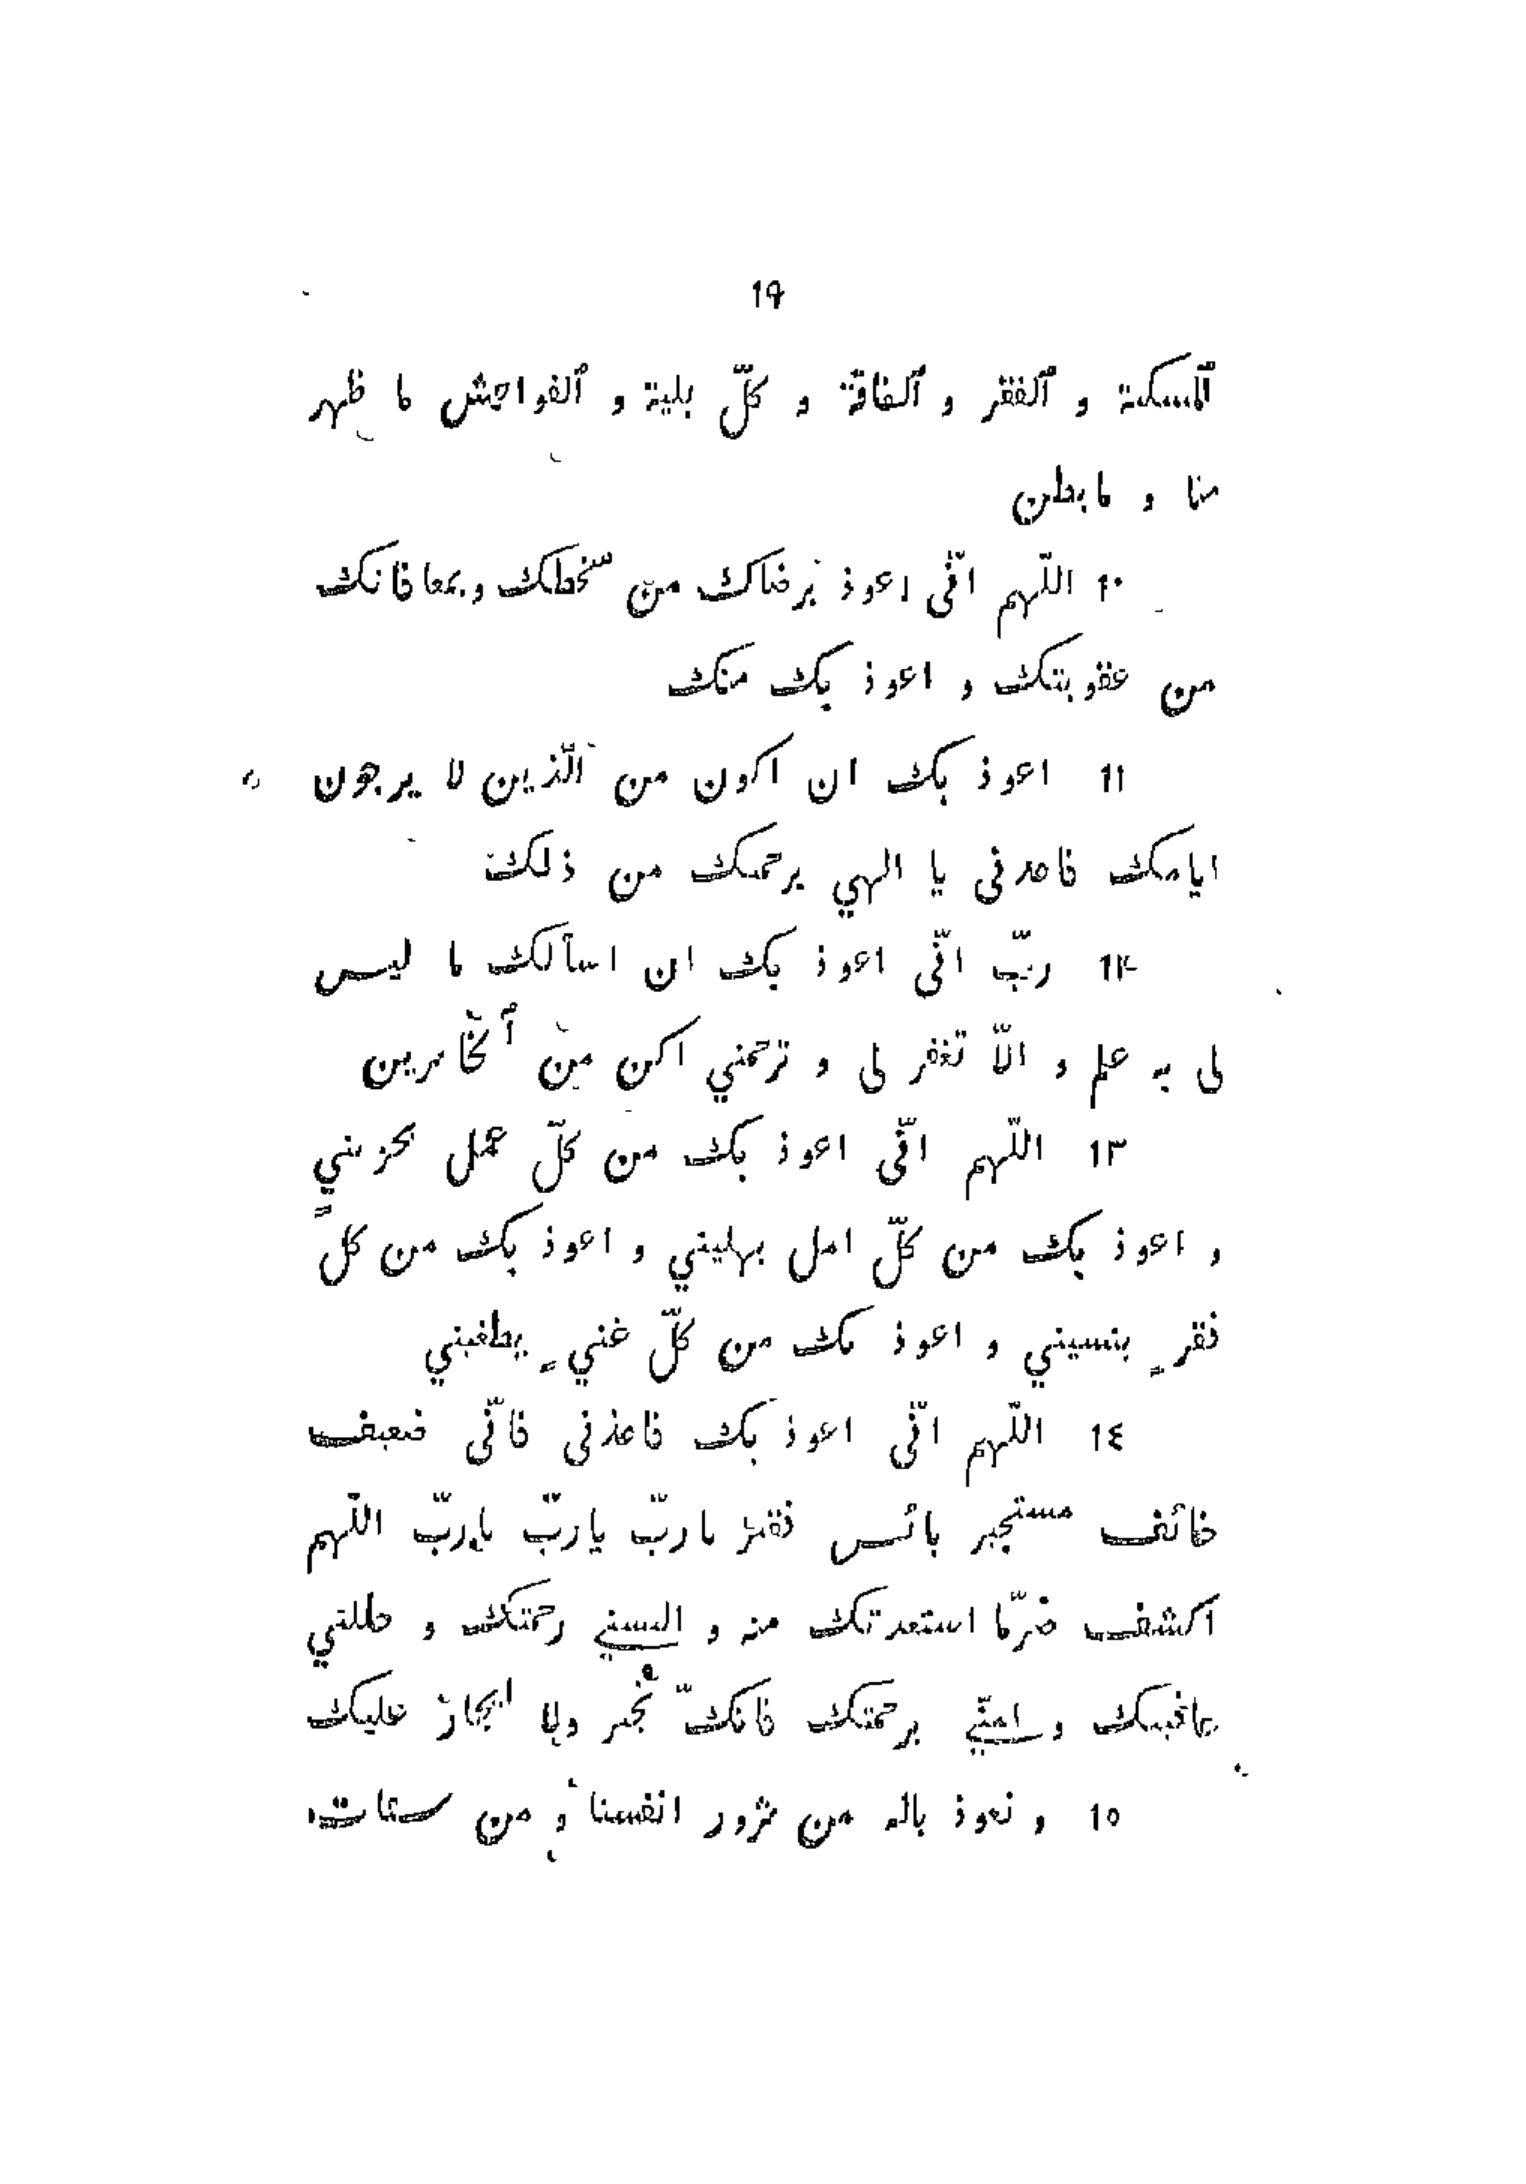 ١٩
ٱلمسكنة و ٱلفقر و ٱلفاقة و كلّ بلية و ٱلفواحش ما ظهر
منا و ما بطن
١٠ اللّهم انّى اعوذ برضاك من سخطك وبمعافاتك
من عقوبتك و اعوذ بك منك
١١ اعوذ بك ان اكون من الّذين لا يرجون
ايامك فاعدنى يا الهي برحمتك من ذلك
١٢ ربّ انّى اعوذ بك ان اسألك ما ليس
لى به علم و الاّ تغفر لى و ترحمني اكن من ٱلخاسرين
١٣ اللّهم انّى اعوذ بك من كلّ عمل يخزيني
و اعوذ بك من كلّ امل يهليني و اعوذ بك من كل
فقرٍ ينسيني و اعوذ بك من كلّ غنيٍ يطغيني
١٤ اللّهم انّى اعوذ بك فاعذنى فانّى ضعيف
خائف مستجير بائس فقير يا ربّ يا ربّ يا ربّ اللّهم
اكشف ضرّ ما استعدتك منه و البسني رحمتك و جللني
عافيتك و امنّي برحمتك فانّك تُجير ولا يجار عليك
١٥ و نعوذ بالله من شرور انفسنا و من سيئات